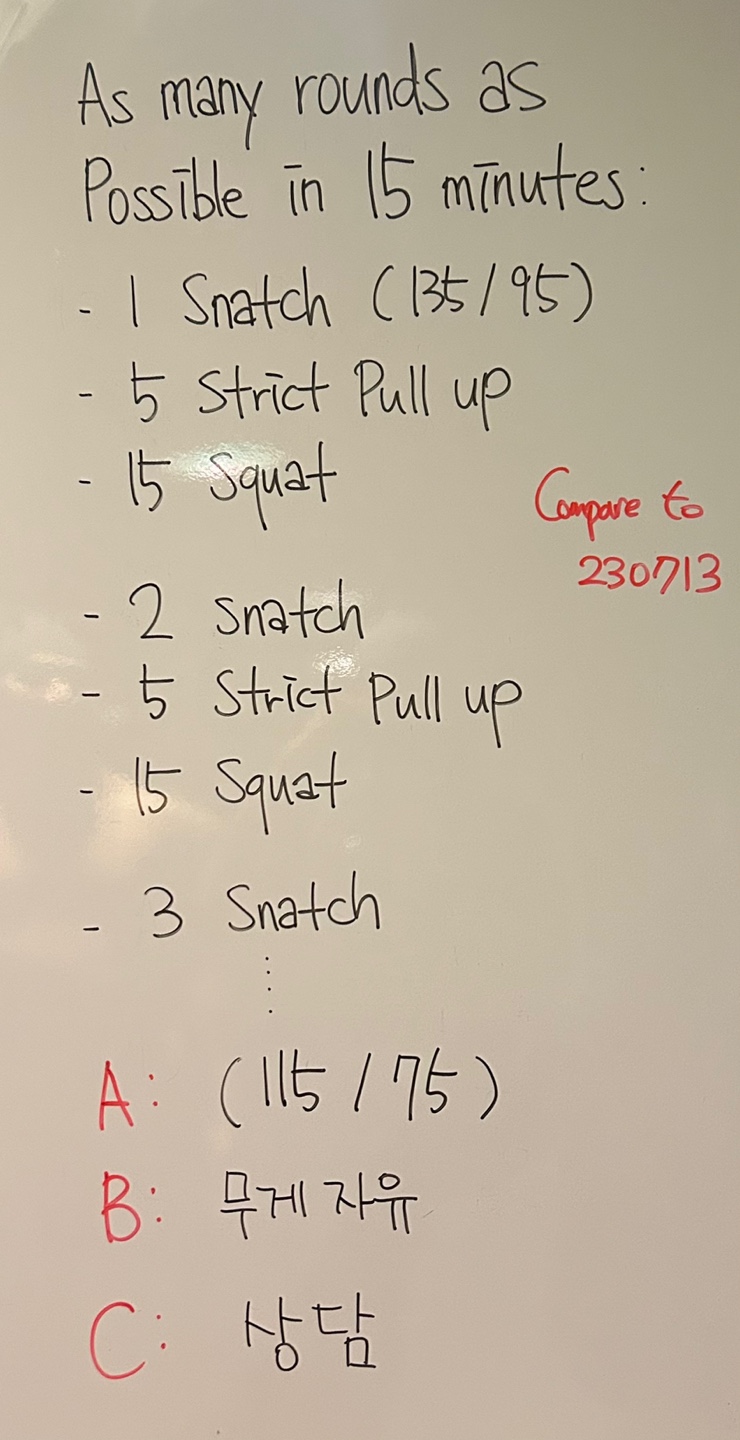 As many rounds as
Possible in 15 minutes:
- 1 Snatch (135/95)
- 5 Strict Pull up
- 15 Squat
Compare to
230713
- 2 Snatch
- 5 Strict Pull up
- 15 Squat
- 3 Snatch
⋮
A: (115/75)
B: 무게 자유
C: 상담